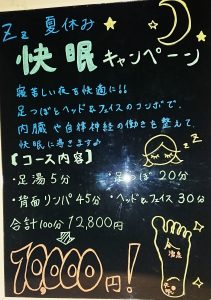 Zz 夏休み
快眠キャンペーン
寝苦しい夜を快適に!!
足つぼとヘッド&フェイスのコンボで、
内臓や自律神経の働きを整えて、
快眠に導きます♪
【コース内容】
・足湯5分 ・足つぼ 20分
・背面リンパ45分 ・ヘッド&フェイス30分
合計100分 12,800円
10,000円!
zZ